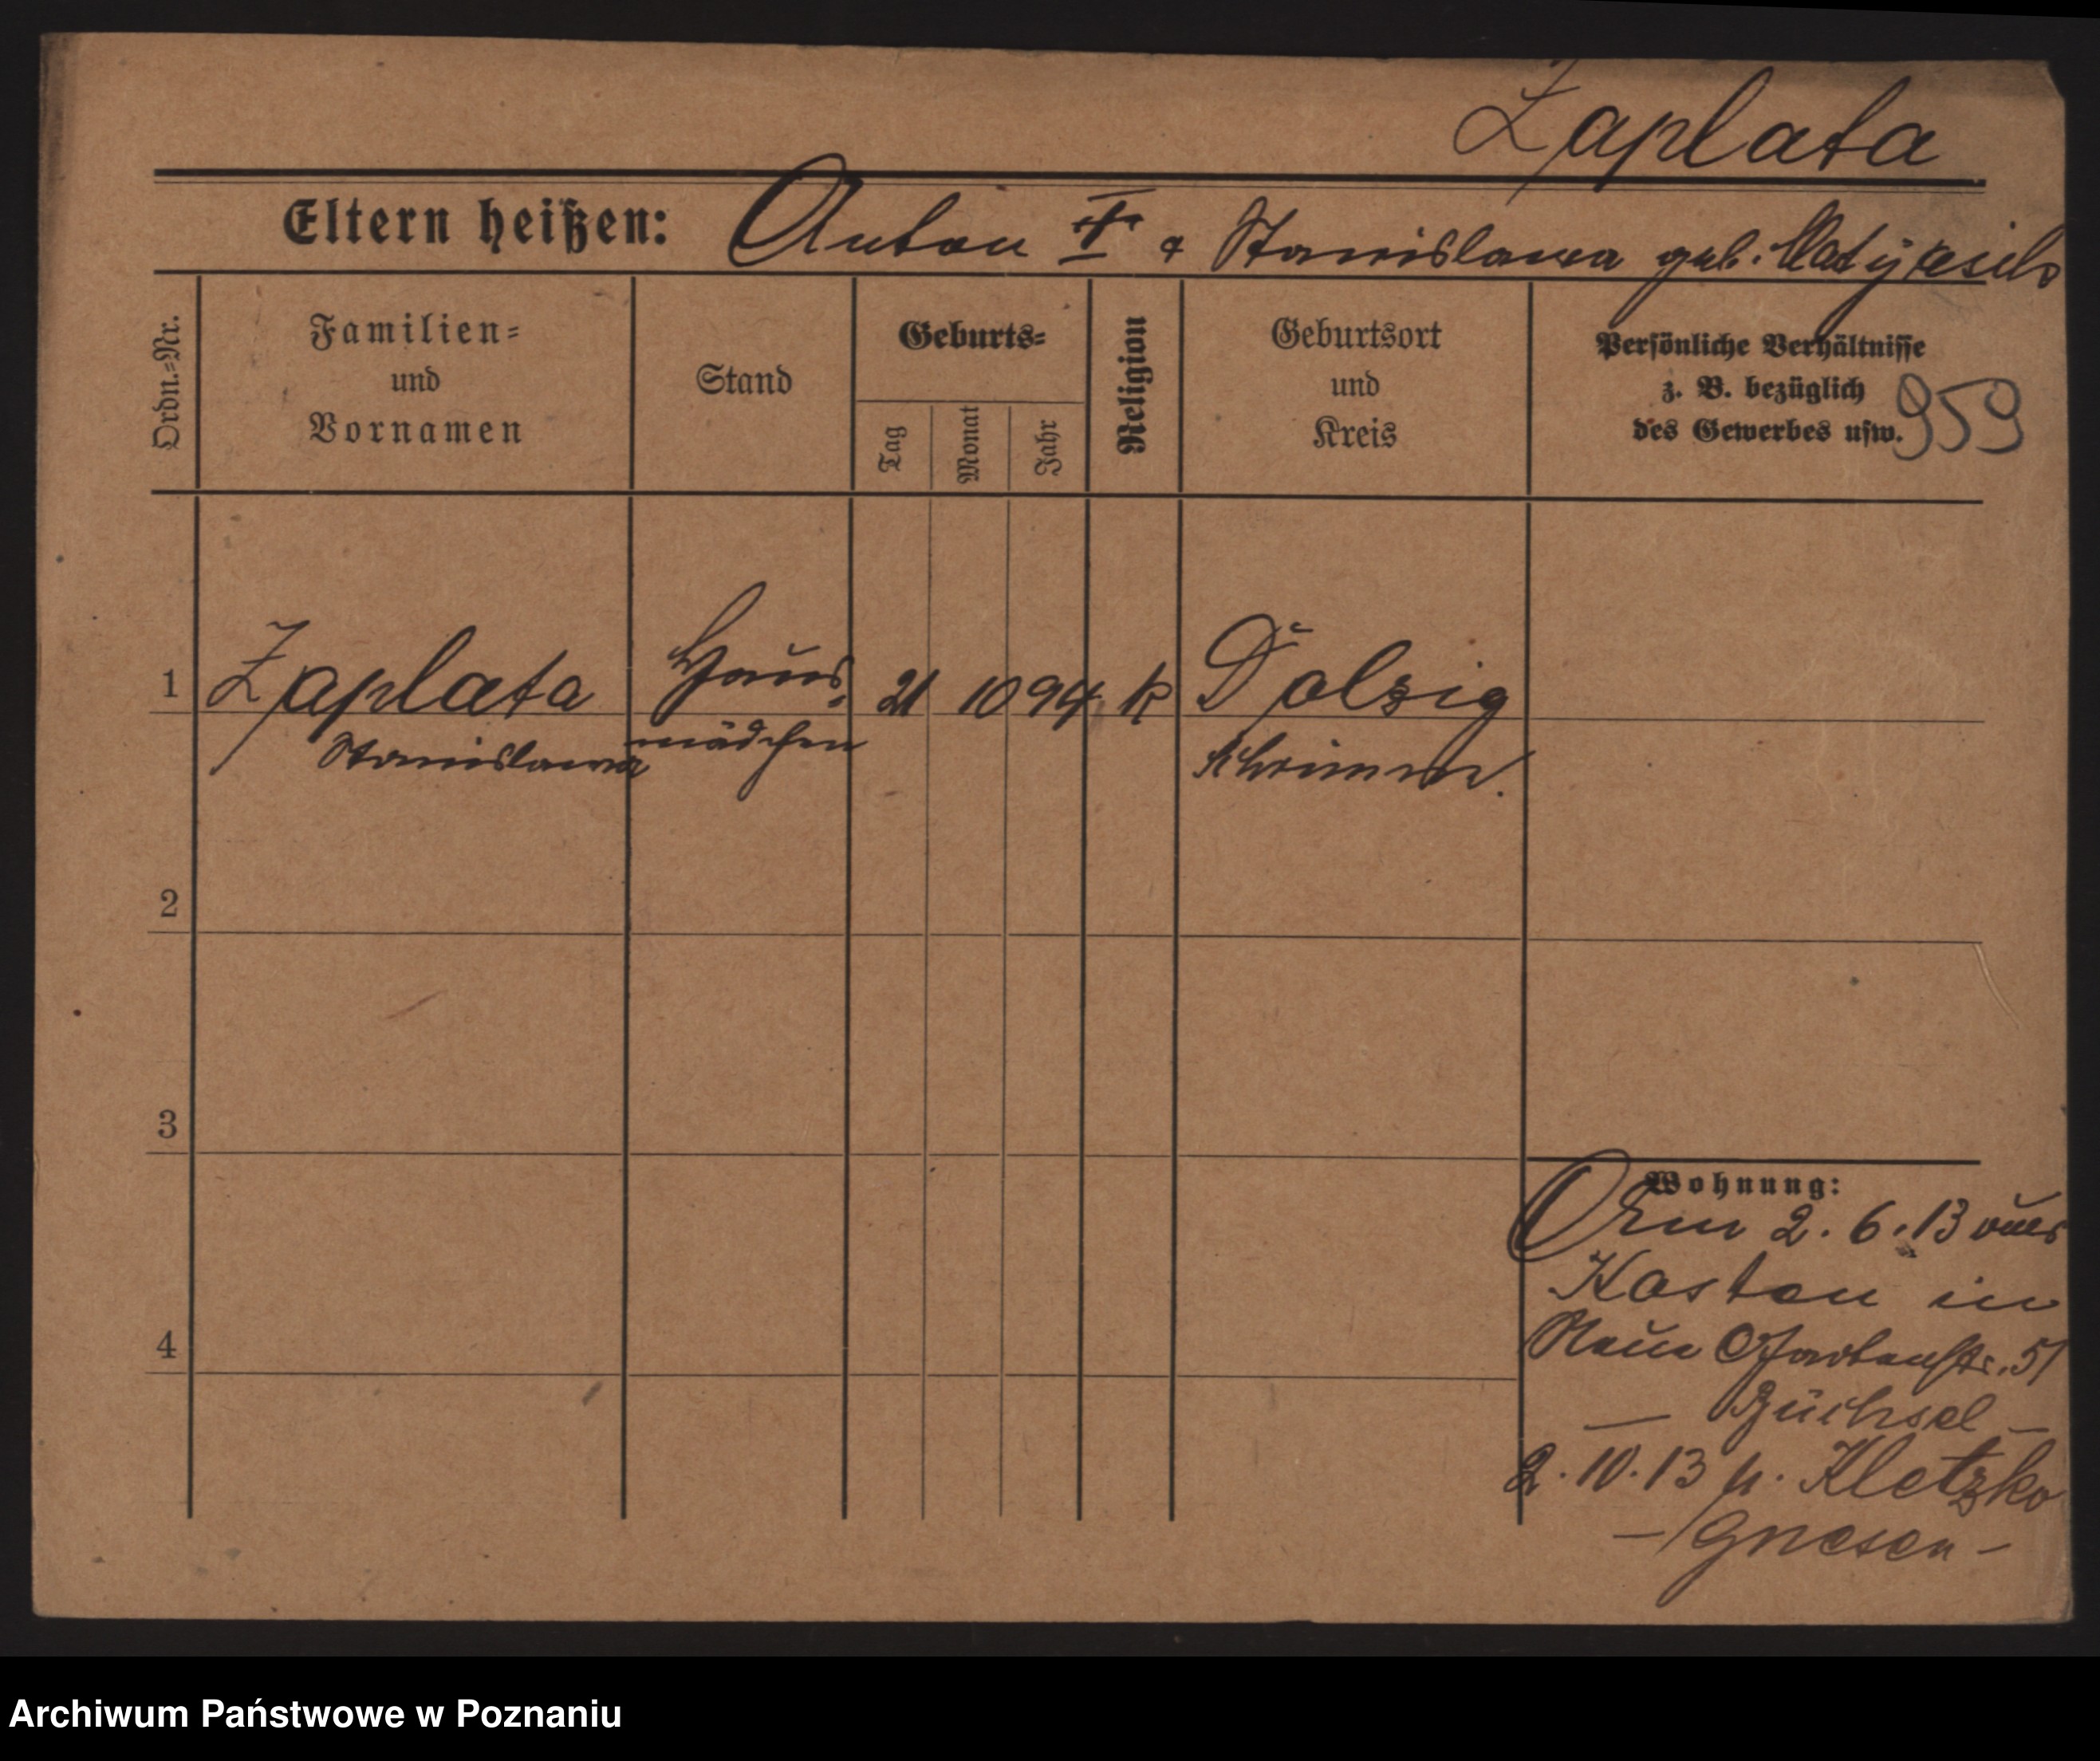 Zaplata
Eltern heißen: Anton † & Stanislawa geb.
Ordn.=Nr.
Familien=
und
Vornamen
Stand
Geburts=
Tag
Monat
Jahr
Religion
Geburtsort
und
Kreis
Persönliche Verhältnisse
z. B. bezüglich
des Gewerbes usw.
959
1 Zaplata Haus= 21 10 94 k Dolzig
Stanislawa mädchen Schrimm.
2
3
4
Wohnung:
2.6.13 aus
Kosten in
Neue Gartenstr. 51
— Büchsel —
2.10.13 n. Kletzko
— Gnesen —
Archiwum Państwowe w Poznaniu